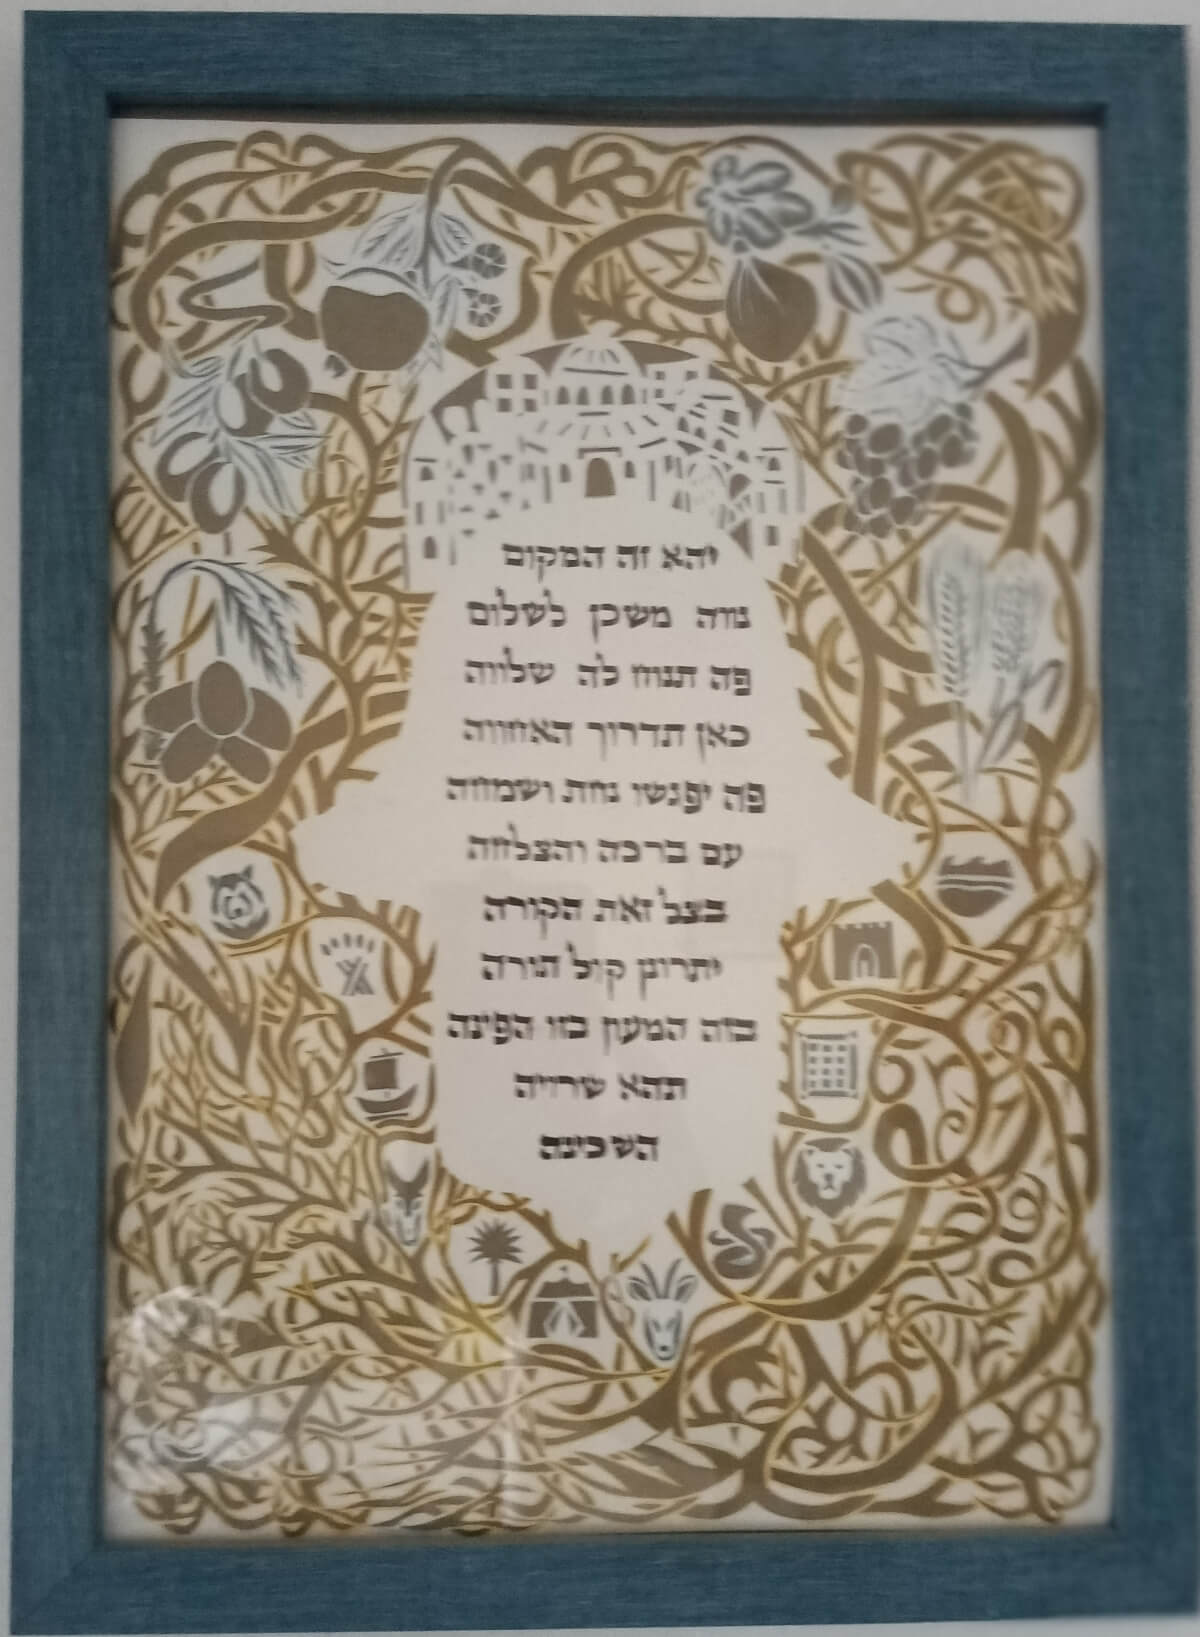 יהא זה המקום
נווה משכן לשלום
פה תנוח לה שלווה
כאן תדרוך האחווה
פה יפגשו נחת ושמחה
עם ברכה והצלחה
בצל זאת הקורה
יתרונן קול תורה
בזה המעון בזו הפינה
תהא שרויה
השכינה